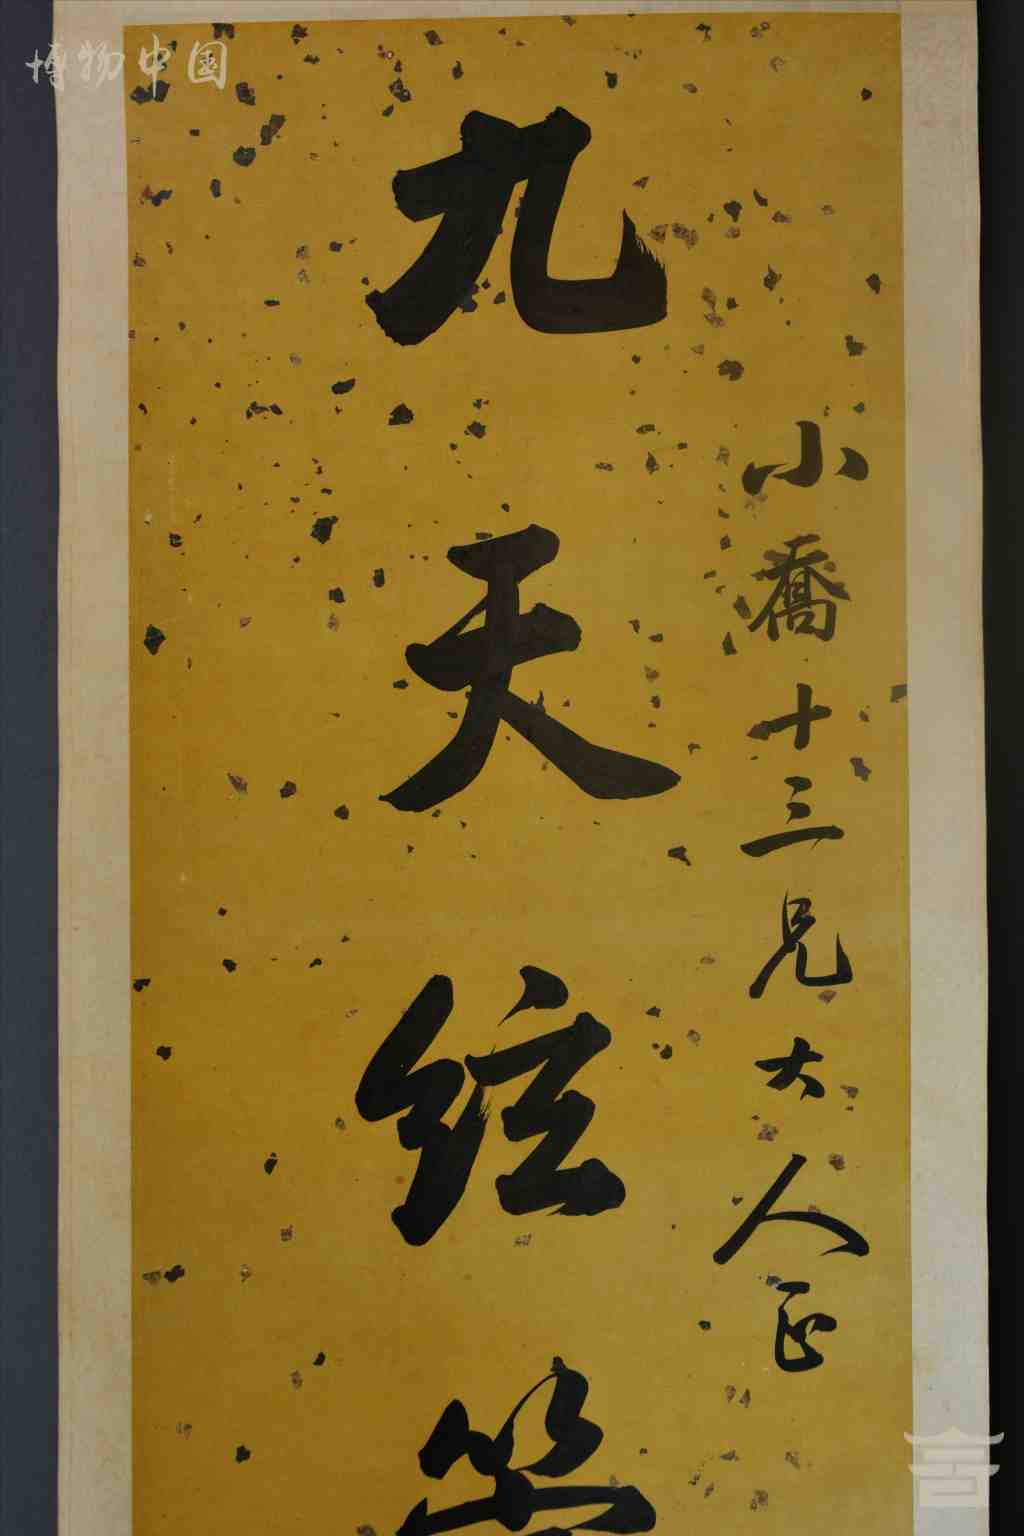 博物中国
小喬十三兄大人正
九天絃